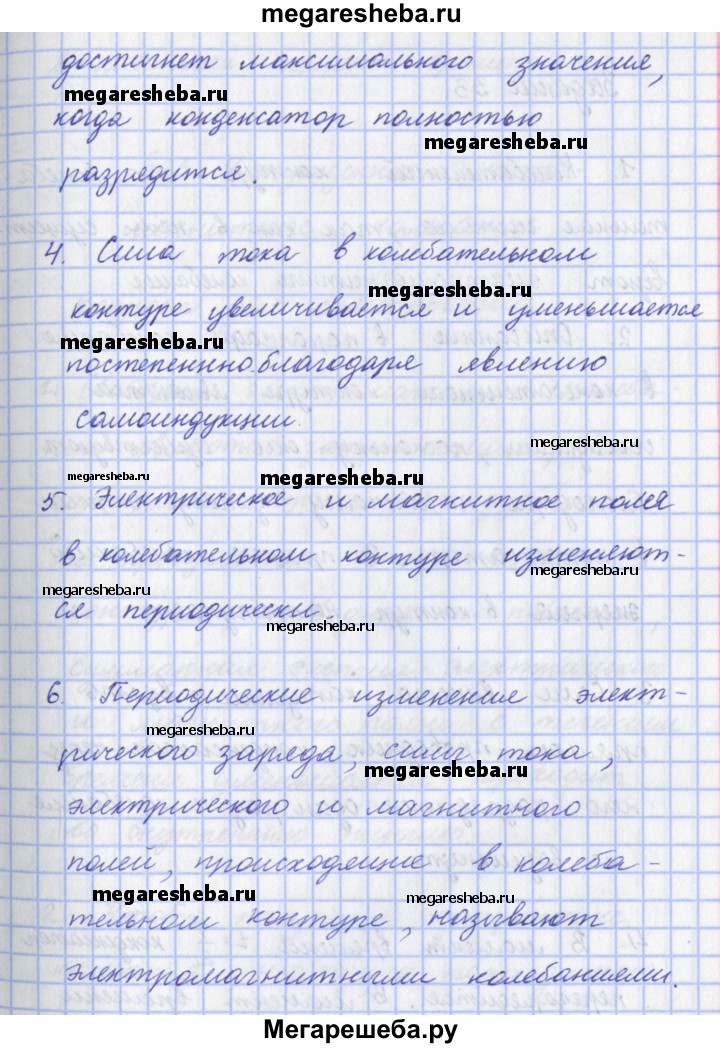 megaresheba.ru
достигнет максимального значения,
megaresheba.ru
когда конденсатор полностью
megaresheba.ru
разрядится.
4. Сила тока в колебательном
megaresheba.ru
контуре увеличивается и уменьшается
megaresheba.ru
постепенно благодаря явлению
самоиндукции.
megaresheba.ru
megaresheba.ru
megaresheba.ru
5. Электрическое и магнитное поля
в колебательном контуре изменяют-
megaresheba.ru
megaresheba.ru
ся периодически.
megaresheba.ru
6. Периодические изменения элект-
megaresheba.ru
рического заряда, силы тока,
megaresheba.ru
электрического и магнитного
полей, происходящие в колеба-
megaresheba.ru
megaresheba.ru
тельном контуре, называют
электромагнитными колебаниями.
Мегарешеба.ру